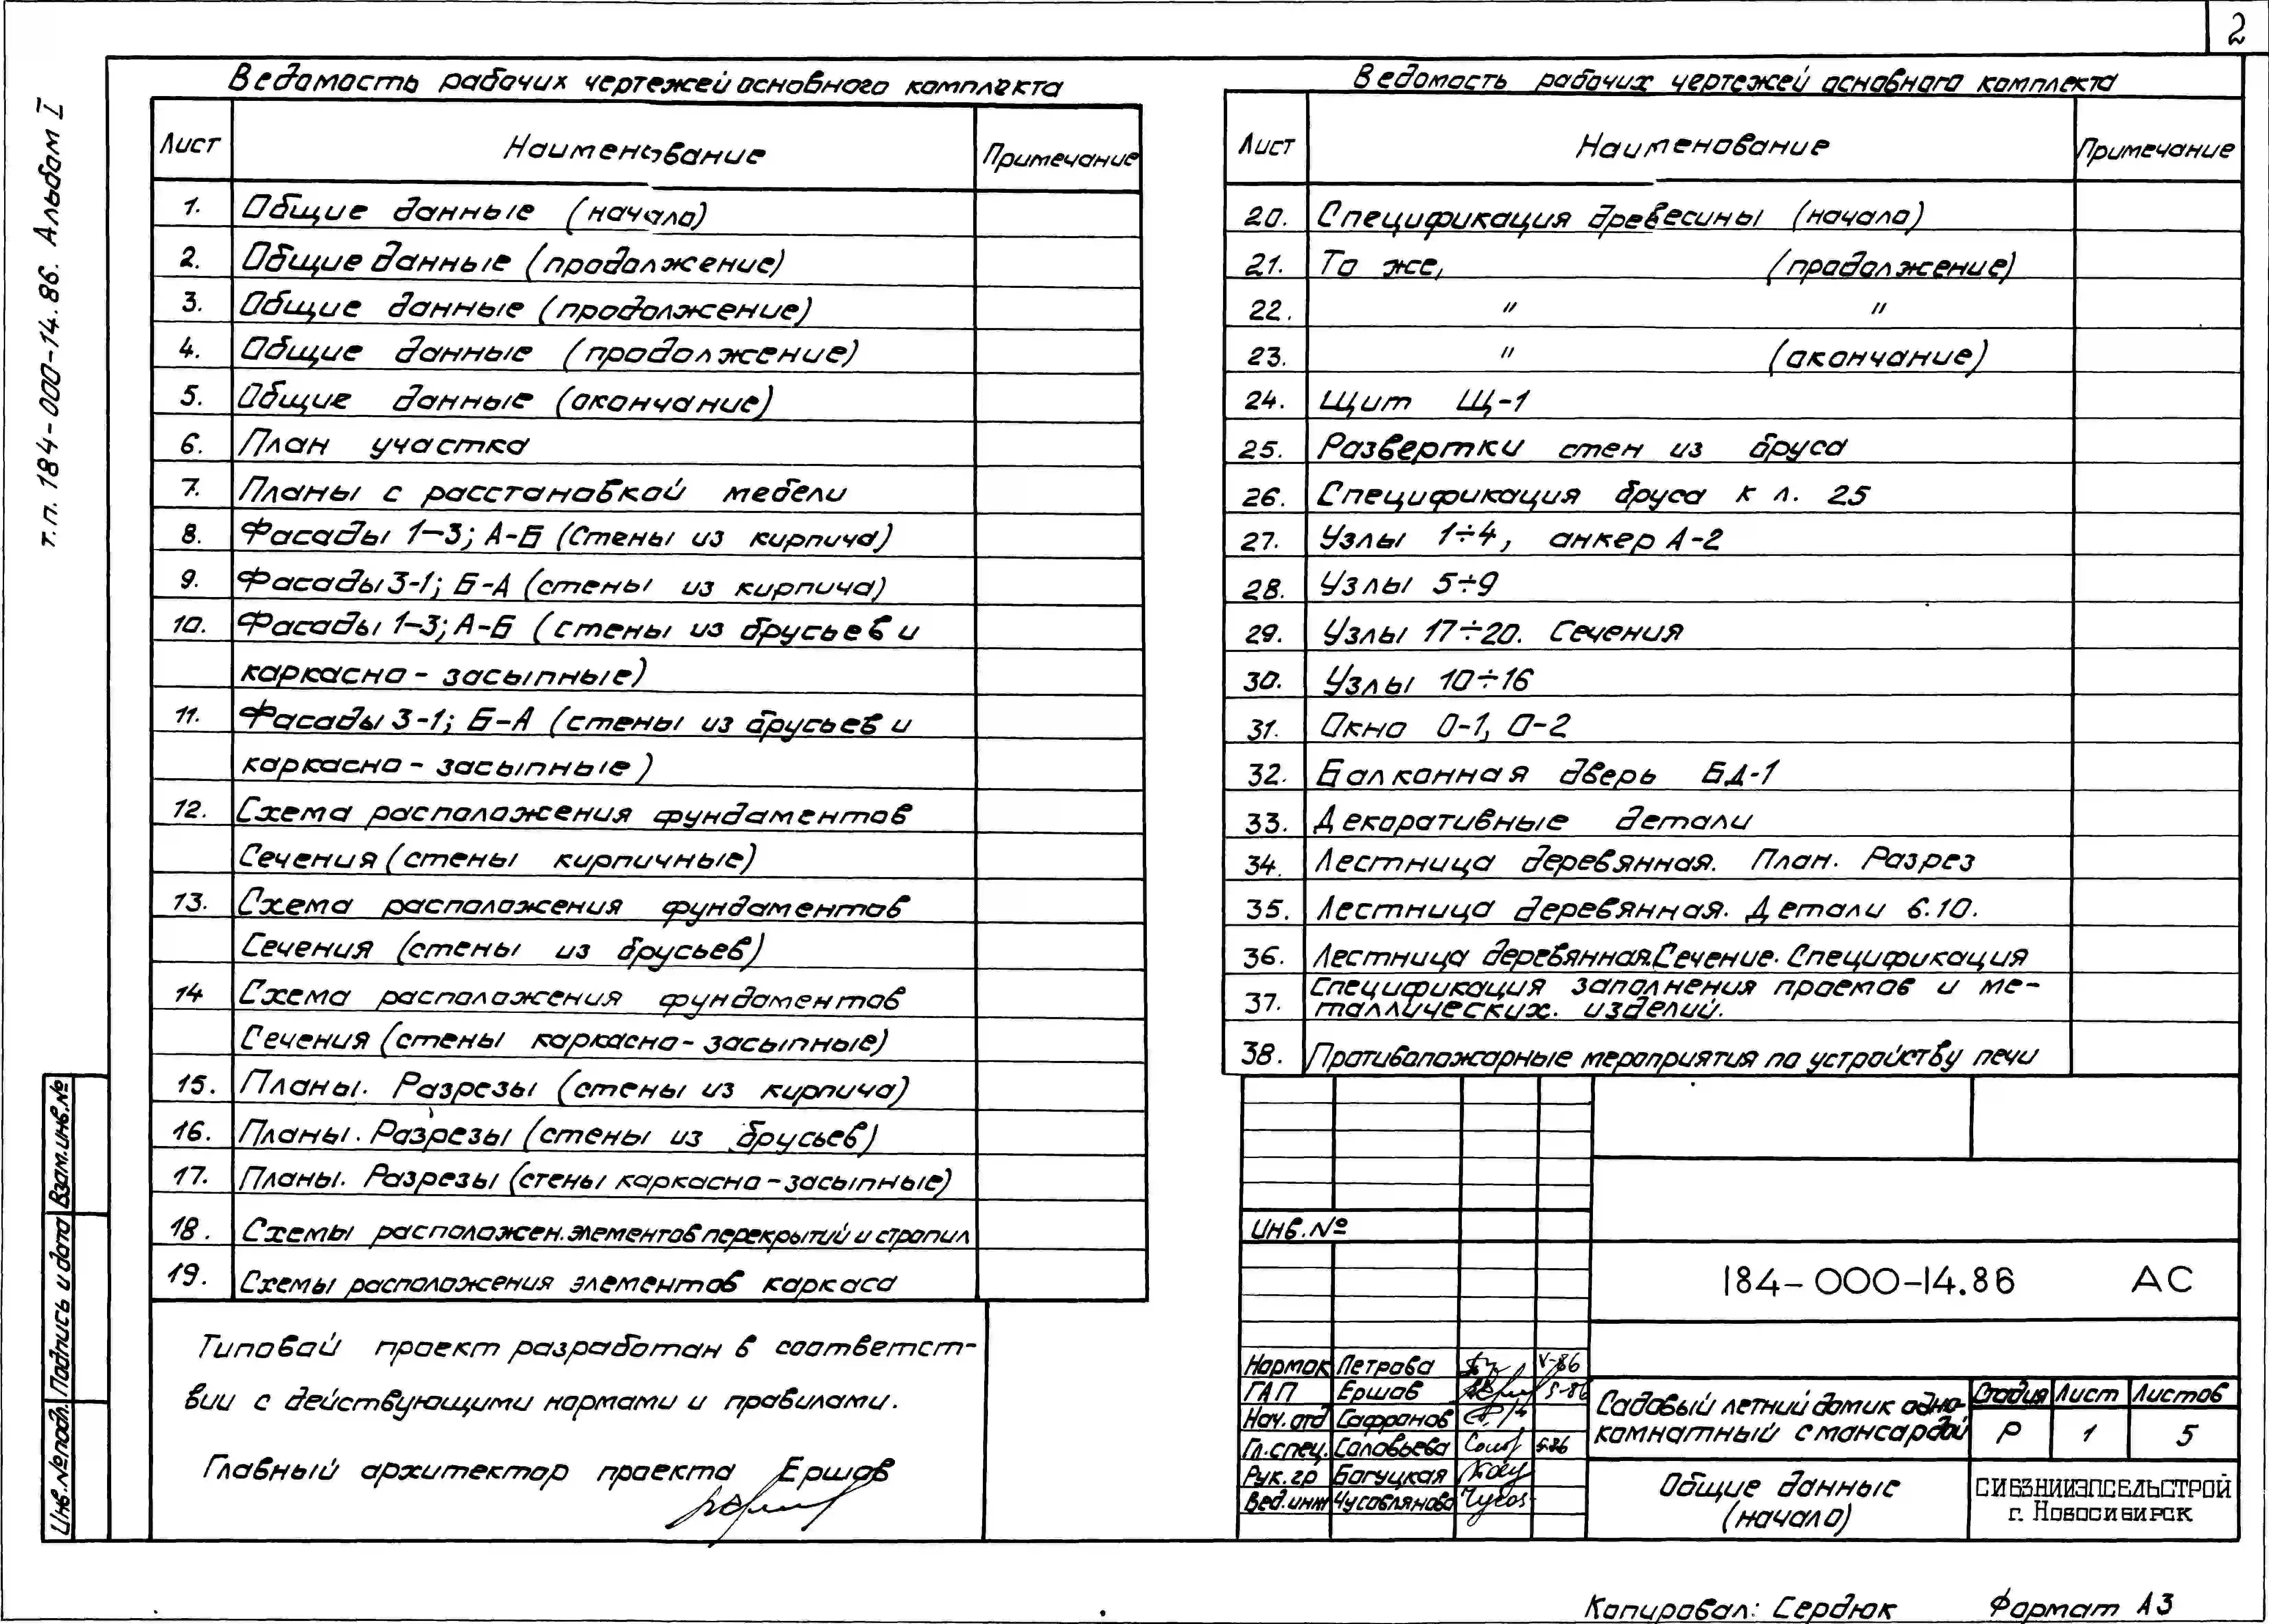 2
т.п. 184-000-14.86. Альбом I
Ведомость рабочих чертежей основного комплекта
Лист Наименование Примечание
1. Общие данные (начало)
2. Общие данные (продолжение)
3. Общие данные (продолжение)
4. Общие данные (продолжение)
5. Общие данные (окончание)
6. План участка
7. Планы с расстановкой мебели
8. Фасады 1-3; А-Б (Стены из кирпича)
9. Фасады 3-1; Б-А (стены из кирпича)
10. Фасады 1-3; А-Б (стены из брусьев и
каркасно-засыпные)
11. Фасады 3-1; Б-А (стены из брусьев и
каркасно-засыпные)
12. Схема расположения фундаментов
Сечения (стены кирпичные)
13. Схема расположения фундаментов
Сечения (стены из брусьев)
14 Схема расположения фундаментов
Сечения (стены каркасно-засыпные)
15. Планы. Разрезы (стены из кирпича)
16. Планы. Разрезы (стены из брусьев)
17. Планы. Разрезы (стены каркасно-засыпные)
18. Схемы расположен. элементов перекрытий и стропил
19. Схемы расположения элементов каркаса
Типовой проект разработан в соответст-
вии с действующими нормами и правилами.
Главный архитектор проекта Ершов
Ведомость рабочих чертежей основного комплекта
Лист Наименование Примечание
20. Спецификация древесины (начало)
21. То же, (продолжение)
22. " "
23. " (окончание)
24. Щит Щ-1
25. Развертки стен из бруса
26. Спецификация бруса к л. 25
27. Узлы 1÷4, анкер А-2
28. Узлы 5÷9
29. Узлы 17÷20. Сечения
30. Узлы 10÷16
31. Окно О-1, О-2
32. Балконная дверь БД-1
33. Декоративные детали
34. Лестница деревянная. План. Разрез
35. Лестница деревянная. Детали 6.10.
36. Лестница деревянная. Сечение. Спецификация
37. Спецификация заполнения проемов и ме-
таллических. изделий.
38. Противопожарные мероприятия по устройству печи
Инв.№
184-000-14.86 АС
Нормок Петрова V-86
ГАП Ершов 5-86
Нач.отд Сафронов
Гл.спец. Соловьева 5.86
Рук.гр Богуцкая
Вед.инж Чусовлянова
Садовый летний домик одно-
комнатный с мансардой
Стадия Лист Листов
Р 1 5
Общие данные
(начало)
СИБЗНИИЭПСЕЛЬСТРОЙ
г. Новосибирск
Инв.№подл. Подпись и дата Взам.инв.№
Копировал: Сердюк Формат А3